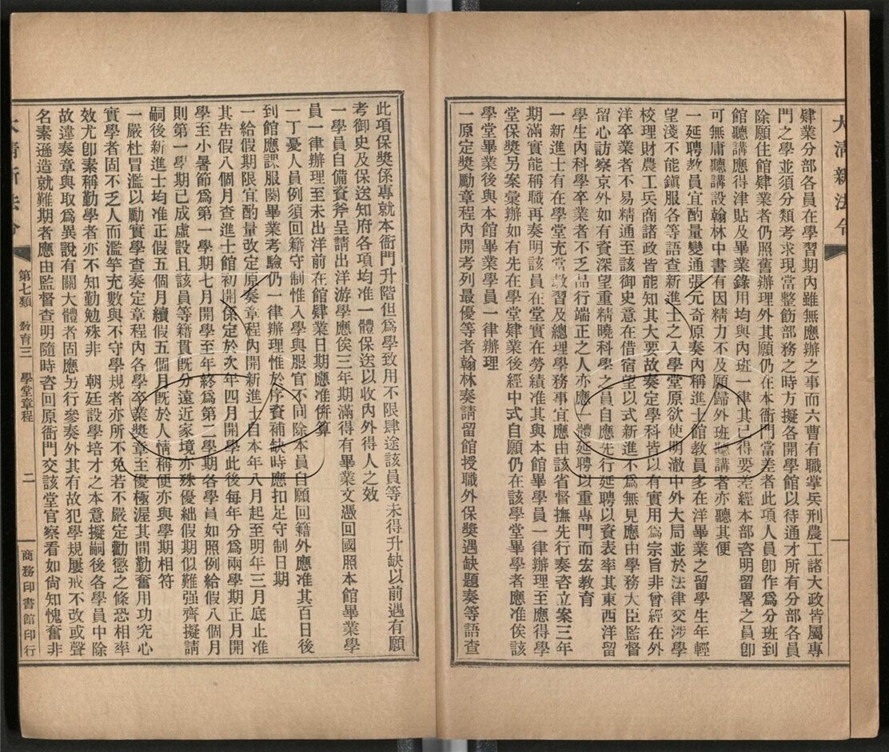 大清新法令
肄業分部各員在學習期內雖無應辦之事而六曹有職掌兵刑農工諸大政皆屬專
門之學並須分類考求現當整飭部務之時方擬各開學館以待通才所有分部各員
除願住館肄業者仍照舊辦理外其願仍在本衙門當差者此項人員卽作爲分班到
館聽講應得津貼及畢業錄用均與內班一律其已得要差經本部咨明留署之員卽
可無庸聽講設翰林中書有因精力不及願歸外班聽講者亦聽其便
一延聘教員宜酌量變通張元奇原奏內稱進士館教員多在洋畢業之留學生年輕
望淺不能鎭服各等語查新進士之入學堂原欲使明澈中外大局並於法律交涉學
校理財農工兵商諸政皆能知其大要故奏定學科皆以有實用爲宗旨非曾經在外
洋卒業者不易精通至該御史意在借宿望以式新進不爲無見應由學務大臣監督
留心訪察京外如有資深望重精曉科學之員自應先行延聘以資表率其東西洋留
學生內科學卒業者不乏品行端正之人亦應一體延聘以重專門而宏教育
一新進士有在學堂充當教習及總理學務事宜應由該省督撫先行奏咨立案三年
期滿實能稱職再奏明該員在堂實在勞績准其與本館畢學員一律辦理至應得學
堂保獎另案彙辦如有先在學堂肄業後經中式自願仍在該學堂畢業者應准俟該
學堂畢業後與本館畢業學員一律辦理
一原定獎勵章程內開考列最優等者翰林奏請留館授職外保獎遇缺題奏等語查
此項保獎係專就本衙門升階但爲學致用不限肆途該員等未得升缺以前遇有願
考御史及保送知府各項均准一體保送以收內外得人之效
一學員自備資斧呈請出洋游學應俟三年期滿得有畢業文憑回國照本館畢業學
員一律辦理至未出洋前在館肄業日期應准併算
一丁憂人員例須回籍守制惟入學與服官不同除本員自願回籍外應准其百日後
到館應課服闋畢業考驗仍一律辦理惟於序資補缺時應扣足守制日期
一給假期限宜酌量改定原奏章程內開新進士自本年八月起至明年三月底止准
其告假八個月查進士館初開係定於次年四月開學此後每年分爲兩學期正月開
學至小暑節爲第一學期七月開學至年終爲第二學期各學員如照例給假八個月
則第一學期已成虛設且該員等籍貫旣分遠近家境亦殊優絀假期似難强齊擬請
嗣後新進士均准正假五個月續假五個月旣於人情稱便亦與學期相符
一嚴杜冒濫以勵實學查奏定章程內各學卒業獎章至優極渥其間勤奮用功究心
實學者固不乏人而濫竽充數與不守學規者亦所不免若不嚴定勸懲之條恐相率
效尤卽素稱勤學者亦不知勤勉殊非　朝廷設學培才之本意擬嗣後各學員中除
故違奏章與取爲異說有關大體者固應另行參奏外其有故犯學規屢戒不改或聲
名素遜造就難期者應由監督查明隨時咨回原衙門交該堂官察看如尙知愧奮非
大清新法令
第七類　教育三　學堂章程
二
商務印書館印行